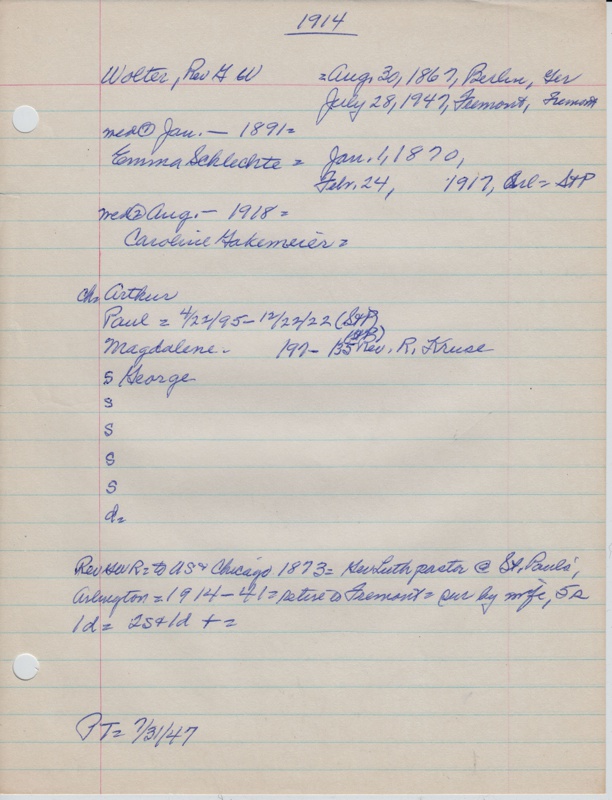 1914
Wolter, Rev G W = Aug. 30, 1867, Berlin, Ger
July 28, 1947, Fremont, Fremont
med ① Jan. — 1891 =
Emma Schlechte = Jan. 1, 1870,
Febr. 24, 1917, Arl = StP
med ② Aug. — 1918 =
Caroline Hakemeier =
ch. Arthur
Paul = 4/22/95 - 12/22/22 (StP)
(StP)
Magdalene - 197 - 135 Rev. R. Kruse
S George
S
S
S
S
S
d =
Rev = to US & Chicago 1873 = Luth pastor @ St. Paul's,
Arlington = 1914 - 41 = retire to Fremont = sur by wife, 5s
1d = 2s & 1d + =
PT = 7/31/47